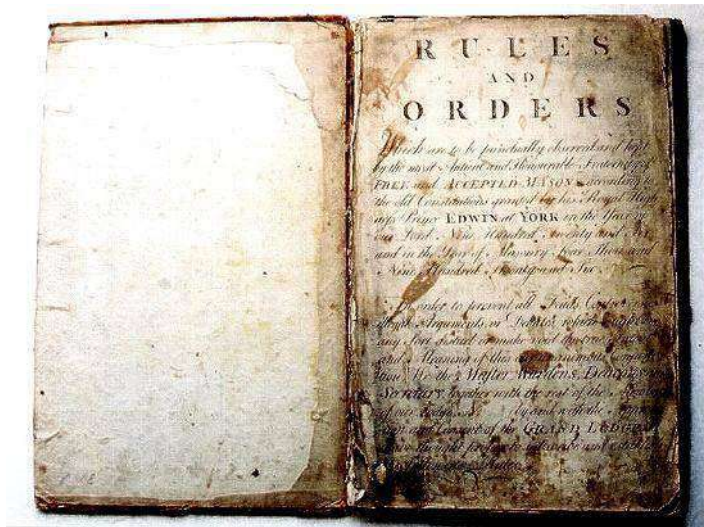 RULES
AND
ORDERS
Which are to be punctually observed and kept
by the most Antient and Honourable Fraternity of
FREE and ACCEPTED MASONS according to
the old Constitutions granted by his Royal High
ness Prince EDWIN at YORK in the Year of
our Lord Nine Hundred twenty and Six
and in the Year of Masonry four Thousand
Nine Hundred Twenty and Six.
In order to prevent all Feuds,
illegal Arguments, or Debates, which might
any Sort disturb or make void the true
and Meaning of this our unanimous
tion We the Master Wardens,
Secretary, together with the rest of the
of our Lodge by and with the
and Consent of the GRAND LODGE
have thought proper to